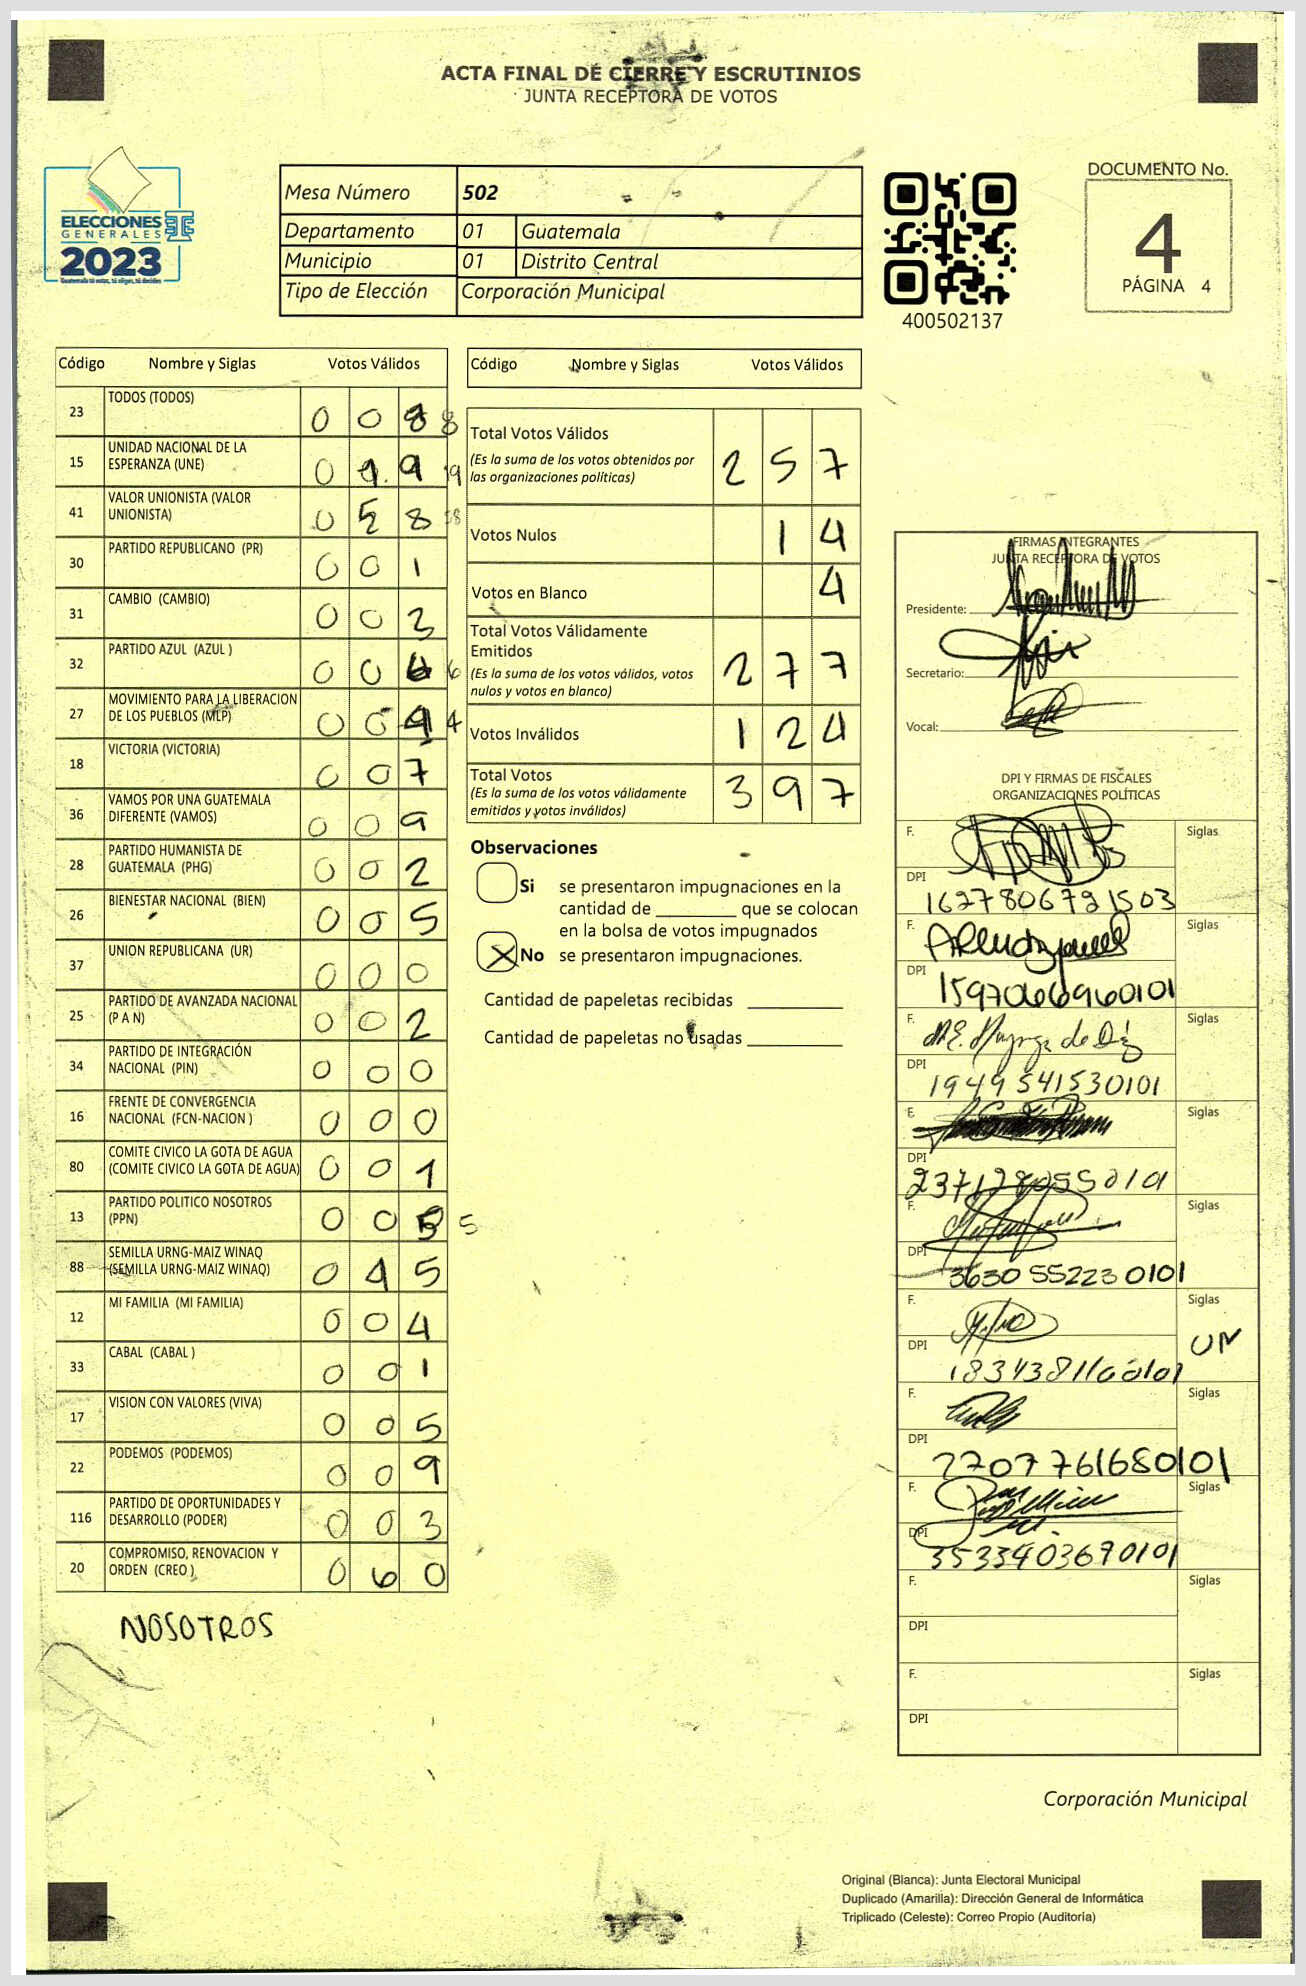 ACTA FINAL DE CIERRE Y ESCRUTINIOS
JUNTA RECEPTORA DE VOTOS
ELECCIONES
GENERALES
2023
Mesa Número 502
Departamento 01 Guatemala
Municipio 01 Distrito Central
Tipo de Elección Corporación Municipal
400502137
DOCUMENTO No.
4
PÁGINA 4
Código Nombre y Siglas Votos Válidos
23 TODOS (TODOS) 0 0 8 8
15 UNIDAD NACIONAL DE LA ESPERANZA (UNE) 0 1 9 19
41 VALOR UNIONISTA (VALOR UNIONISTA) 0 5 8 58
30 PARTIDO REPUBLICANO (PR) 0 0 1
31 CAMBIO (CAMBIO) 0 0 3
32 PARTIDO AZUL (AZUL ) 0 0 6 6
27 MOVIMIENTO PARA LA LIBERACION DE LOS PUEBLOS (MLP) 0 0 4 4
18 VICTORIA (VICTORIA) 0 0 7
36 VAMOS POR UNA GUATEMALA DIFERENTE (VAMOS) 0 0 9
28 PARTIDO HUMANISTA DE GUATEMALA (PHG) 0 0 2
26 BIENESTAR NACIONAL (BIEN) 0 0 5
37 UNION REPUBLICANA (UR) 0 0 0
25 PARTIDO DE AVANZADA NACIONAL (P A N) 0 0 2
34 PARTIDO DE INTEGRACIÓN NACIONAL (PIN) 0 0 0
16 FRENTE DE CONVERGENCIA NACIONAL (FCN-NACION ) 0 0 0
80 COMITE CIVICO LA GOTA DE AGUA (COMITE CIVICO LA GOTA DE AGUA) 0 0 1
13 PARTIDO POLITICO NOSOTROS (PPN) 0 0 5 5
88 SEMILLA URNG-MAIZ WINAQ (SEMILLA URNG-MAIZ WINAQ) 0 4 5
12 MI FAMILIA (MI FAMILIA) 0 0 4
33 CABAL (CABAL ) 0 0 1
17 VISION CON VALORES (VIVA) 0 0 5
22 PODEMOS (PODEMOS) 0 0 9
116 PARTIDO DE OPORTUNIDADES Y DESARROLLO (PODER) 0 0 3
20 COMPROMISO, RENOVACION Y ORDEN (CREO ) 0 6 0
NOSOTROS
Código Nombre y Siglas Votos Válidos
Total Votos Válidos 2 5 7
(Es la suma de los votos obtenidos por
las organizaciones políticas)
Votos Nulos 1 4
Votos en Blanco 4
Total Votos Válidamente
Emitidos 2 7 7
(Es la suma de los votos válidos, votos
nulos y votos en blanco)
Votos Inválidos 1 2 4
Total Votos 3 9 7
(Es la suma de los votos válidamente
emitidos y votos inválidos)
Observaciones
Si se presentaron impugnaciones en la
cantidad de ________ que se colocan
en la bolsa de votos impugnados
No se presentaron impugnaciones.
Cantidad de papeletas recibidas
Cantidad de papeletas no usadas
FIRMAS INTEGRANTES
JUNTA RECEPTORA DE VOTOS
Presidente:
Secretario:
Vocal:
DPI Y FIRMAS DE FISCALES
ORGANIZACIONES POLÍTICAS
F. Siglas
DPI 1627806721503
F. Siglas
DPI 1597066960101
F. Siglas
DPI 1949541530101
F. Siglas
DPI 2371280550101
F. Siglas
DPI 3630552230101
F. Siglas
DPI
F. Siglas
DPI 2707761680101
F. Siglas
DPI 3533403670101
F. Siglas
DPI
F. Siglas
DPI
Corporación Municipal
Original (Blanca): Junta Electoral Municipal
Duplicado (Amarilla): Dirección General de Informática
Triplicado (Celeste): Correo Propio (Auditoría)